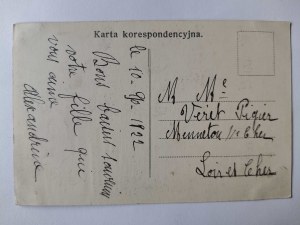 Karta korespondencyjna.
le 10-9-1922
Bons baisers
votre fille qui
vous aime
Alexandrine
M Me
Véret Pigier
Mennetou s/r Cher
Loir et Cher